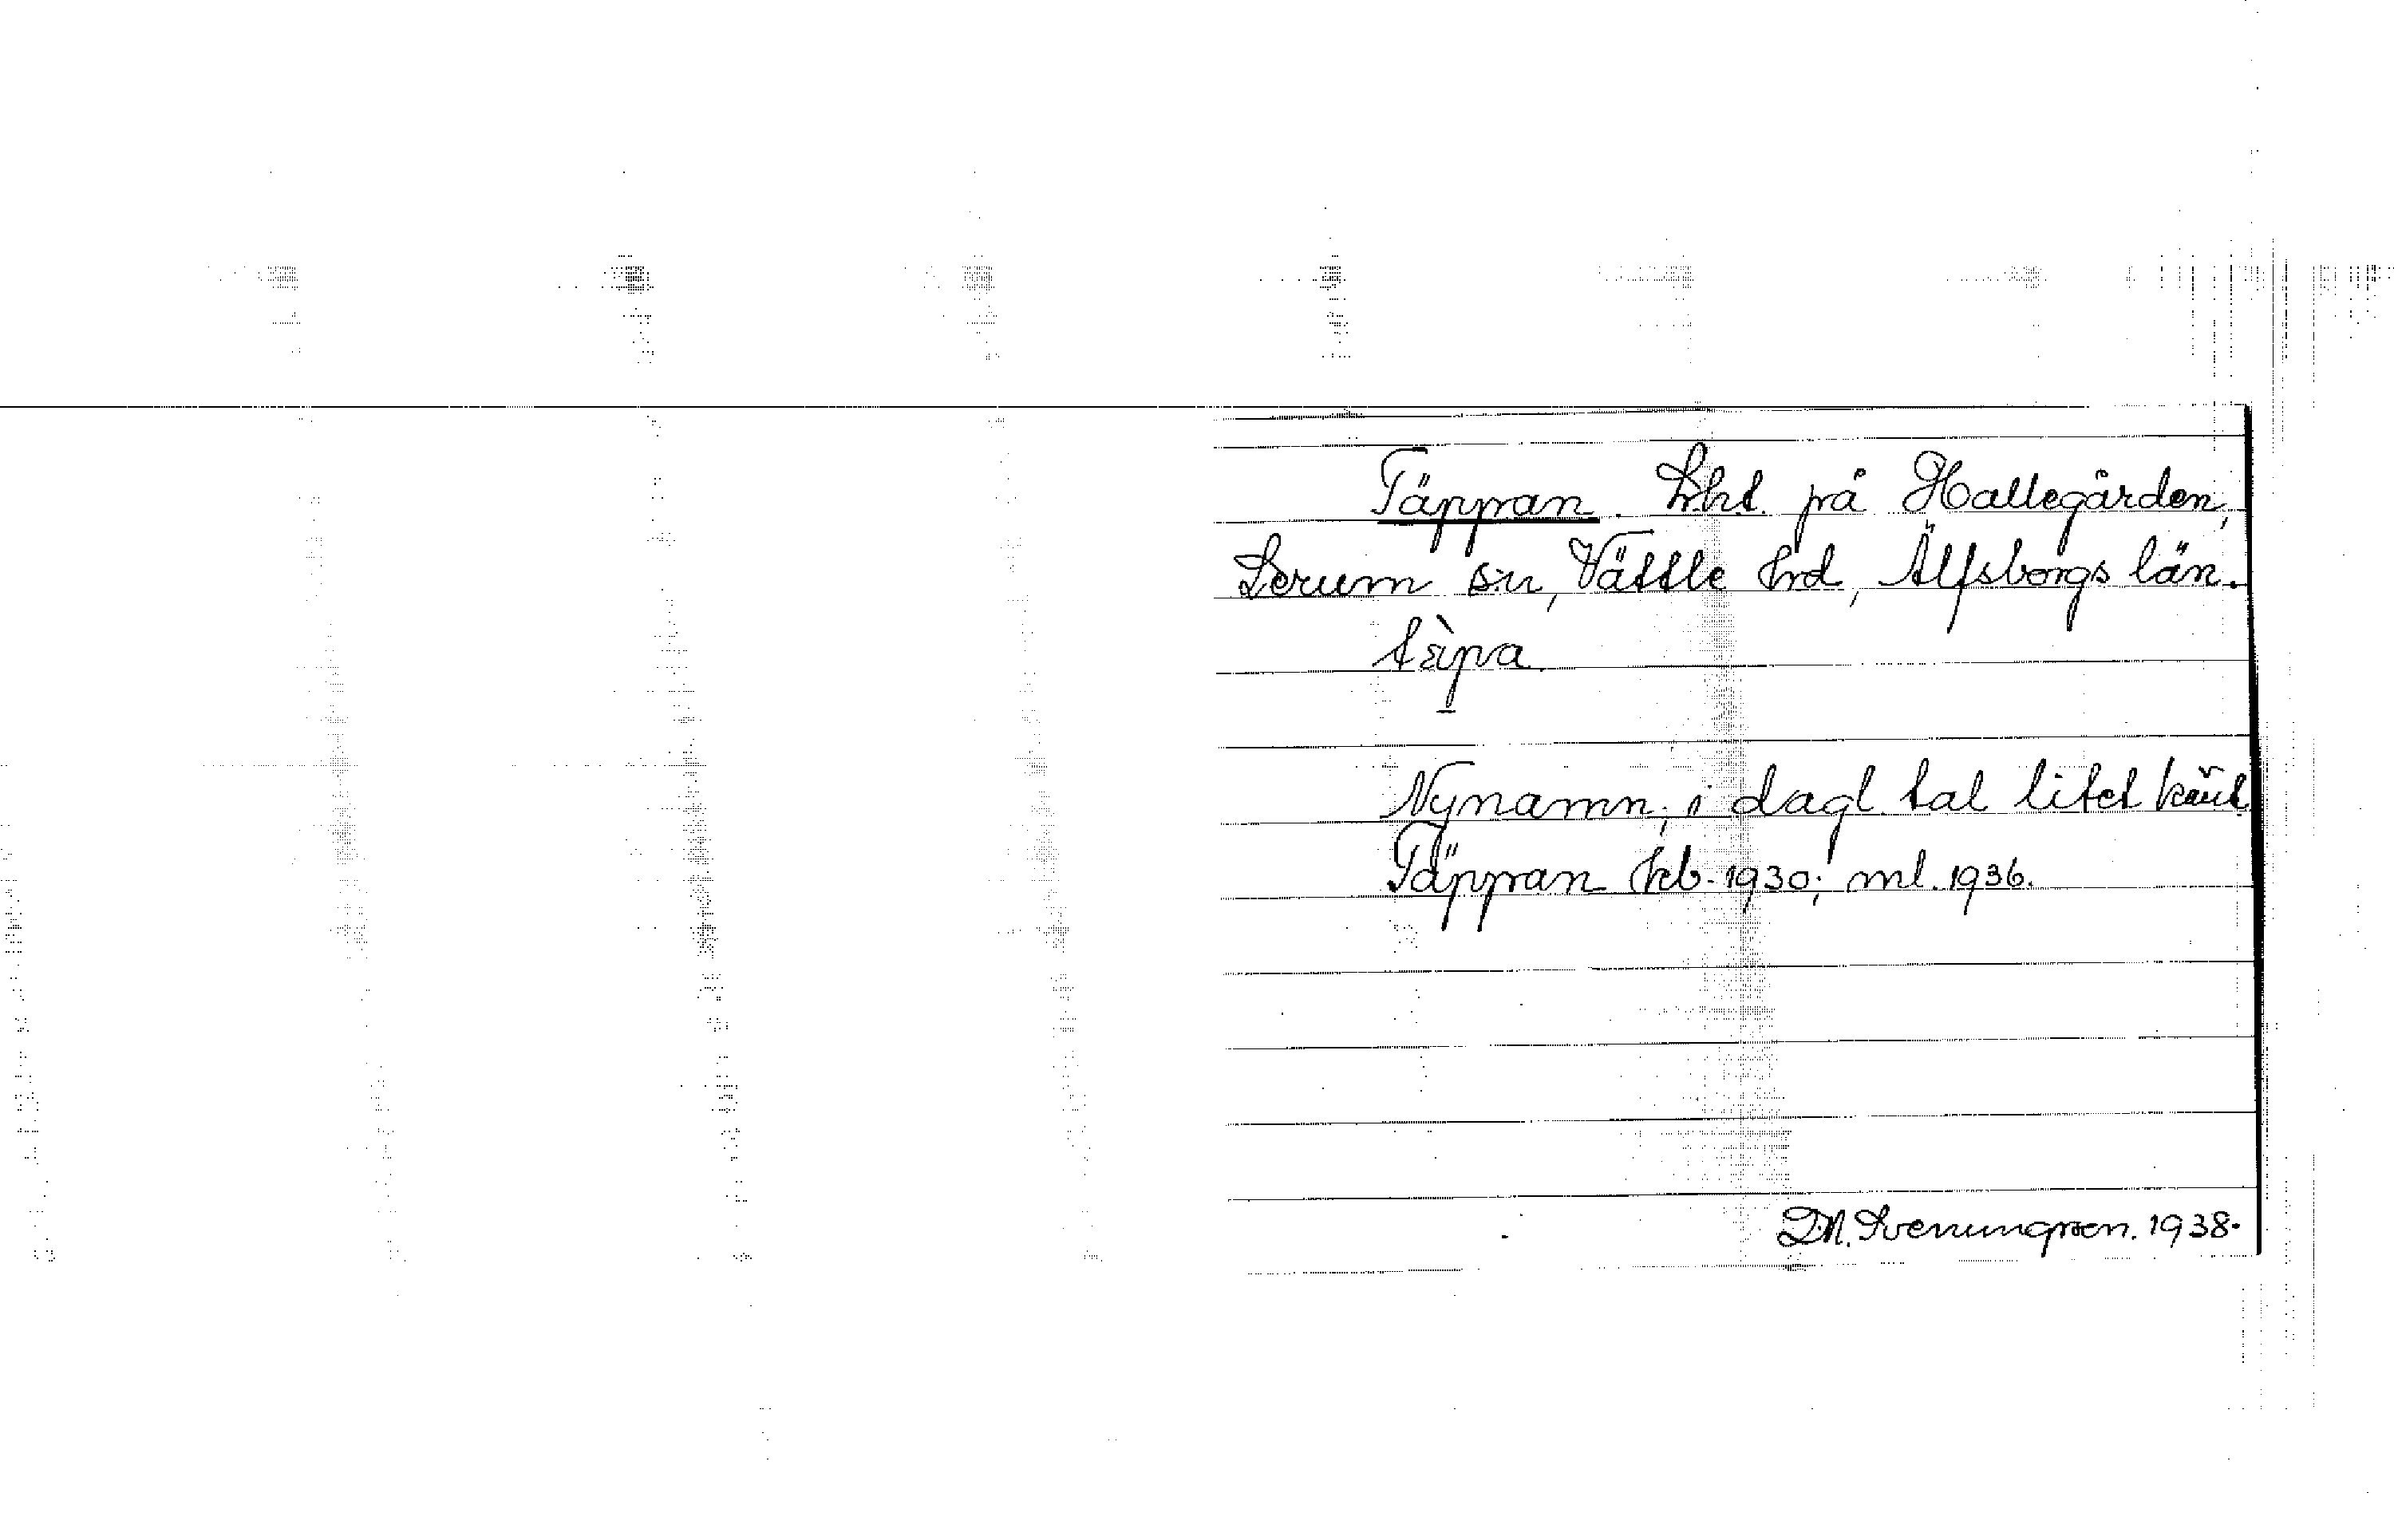 Täppan. Lht. på Hallegården,
Lerum sn, Vättle hrd, Älfsborgs län.
tæ̀pa
Nynamn; i dagl. tal litet känt.
Täppan kb. 1930; ml. 1936.
D.N. Svenungsson. 1938.